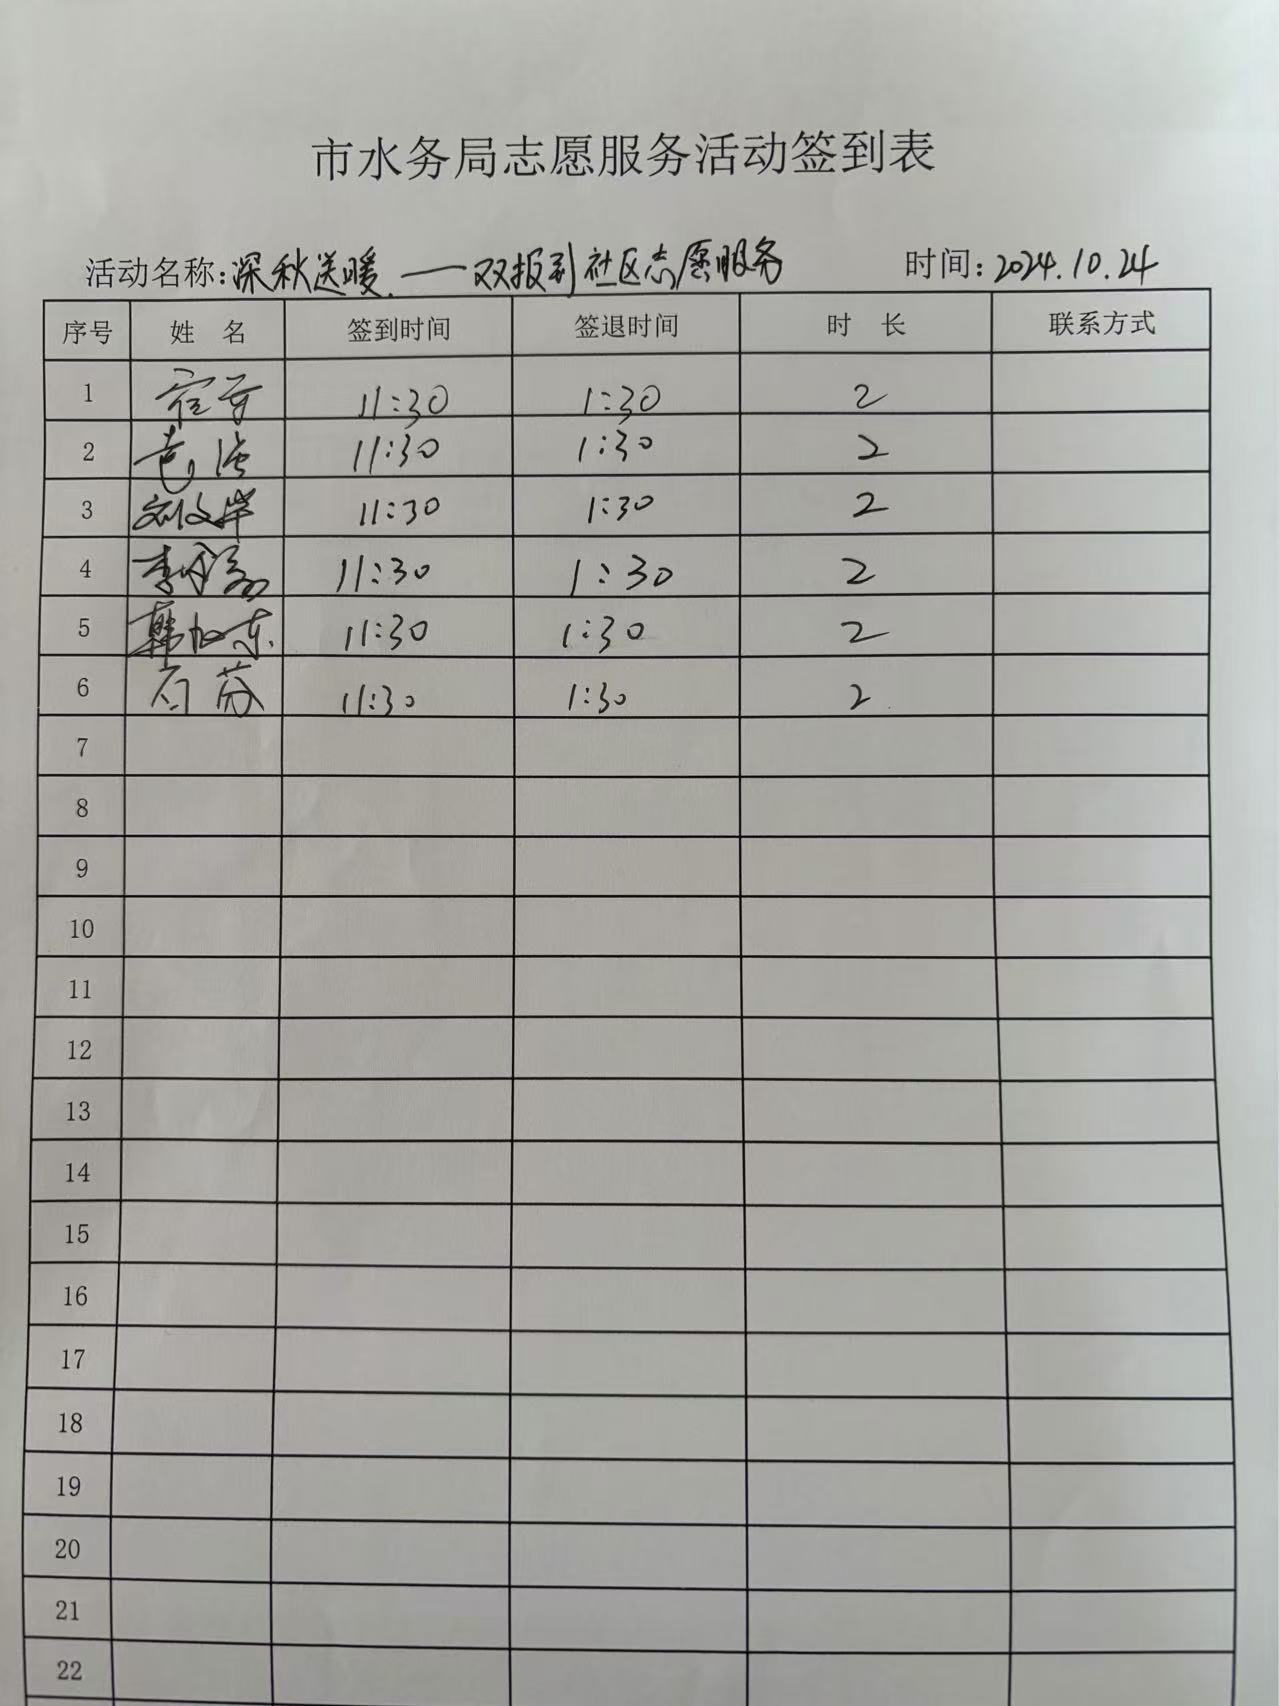 市水务局志愿服务活动签到表
活动名称:深秋送暖.——双报到社区志愿服务 时间:2024.10.24
序号 姓 名 签到时间 签退时间 时 长 联系方式
1 11:30 1:30 2
2 11:30 1:30 2
3 刘文岸 11:30 1:30 2
4 11:30 1:30 2
5 韩加东 11:30 1:30 2
6 石芬 11:30 1:30 2
7
8
9
10
11
12
13
14
15
16
17
18
19
20
21
22